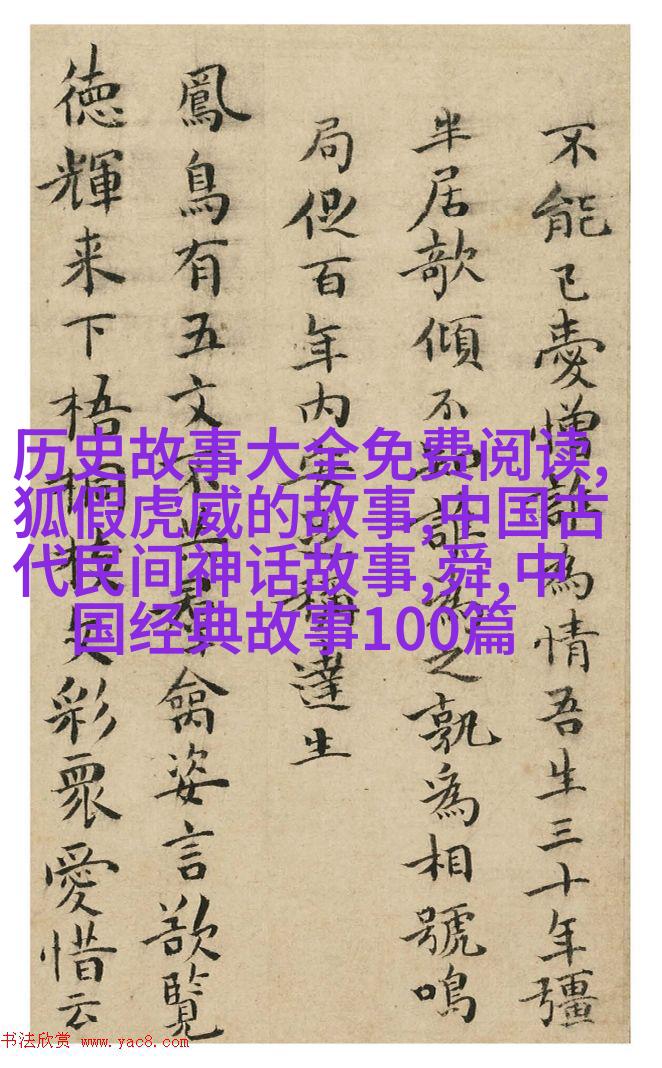 不能已愛憎詎為情吾生三十年彊
半居欹傾不知誰為之孰為相號鳴
局促百年内安稱達生
鳳鳥有五文禽姿言欲覽
徳輝来下梧桐枝失彩眾愛惜云
历史故事大全免费阅读,
狐假虎威的故事,中国古
代民间神话故事,舜,中
国经典故事100篇
书法欣赏 www.yac8.com